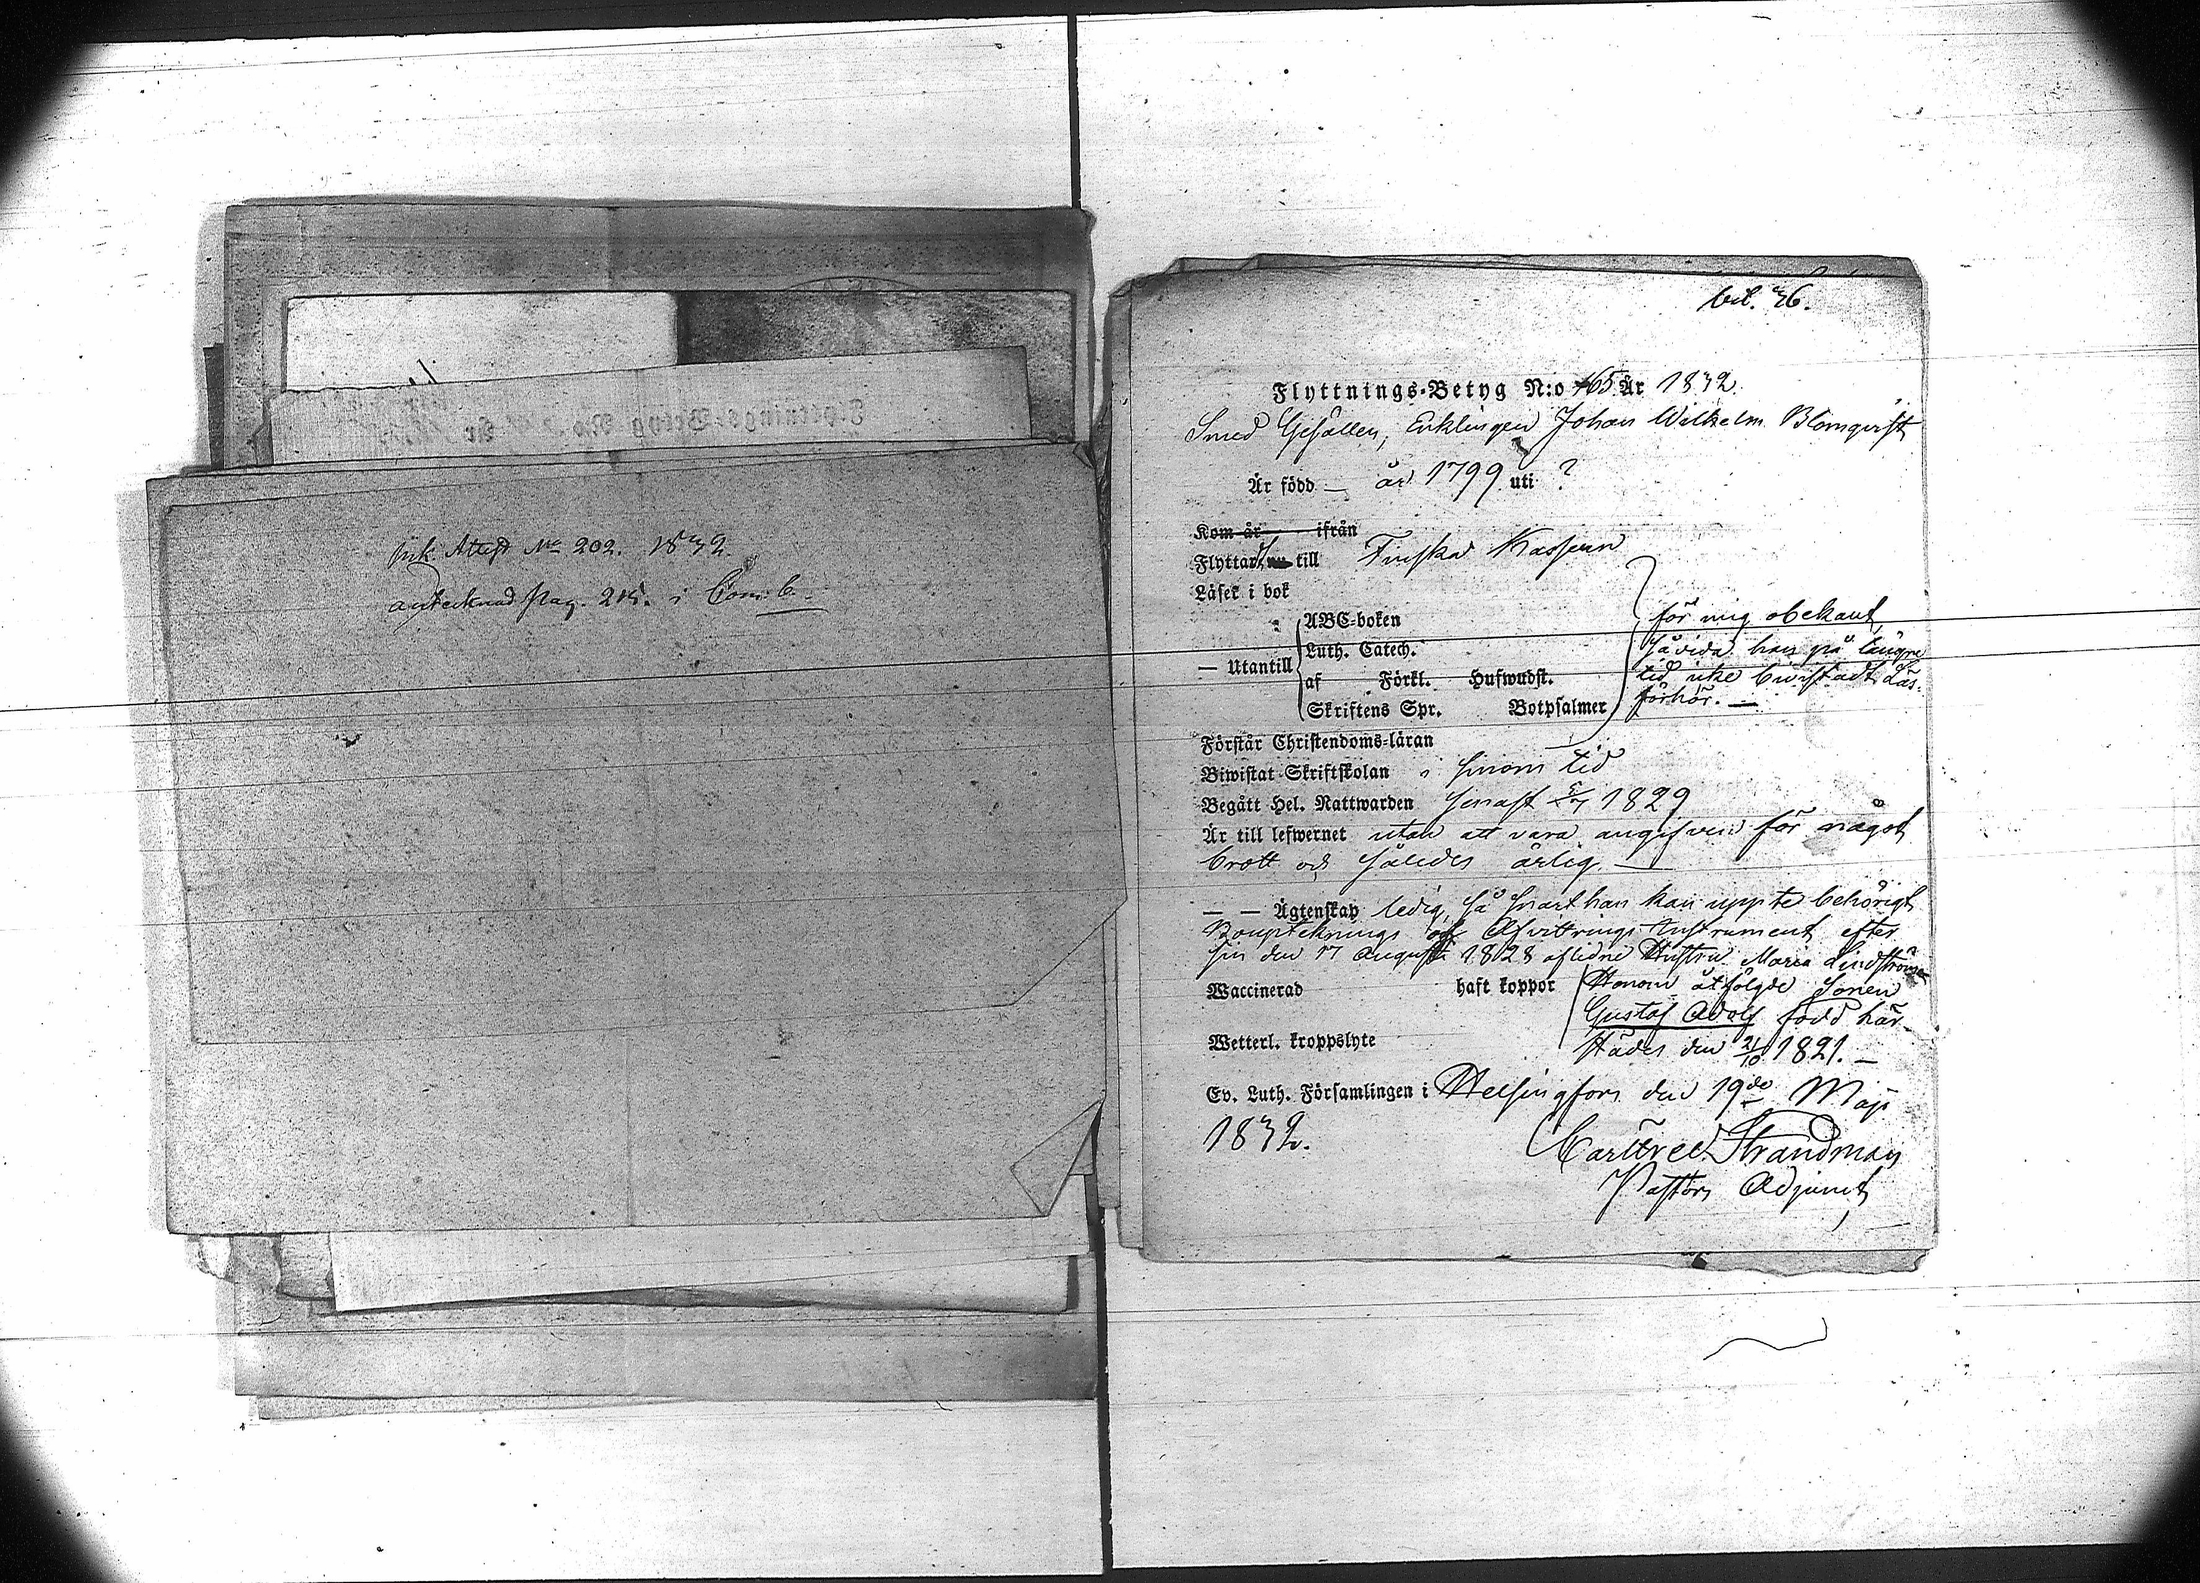 ink. Attest No 202. 1832.
antecknad pag. 215. i Com. b.
bil. 36.
Flyttnings-Betyg N:o 165 År 1832.
Smed Gesällen, Enklingen Johan Wilhelm Blomqvist
Är född — år 1799 uti ?
Kom år ifrån
Flyttar nu till Finska Kassern
Läser i bok
ABC-boken
för mig obekant,
Luth. Catech.
såvida han på längre
— Utantill
af Förkl. Hufwudst.
tid icke bivistadt Läs-
Skriftens Spr. Botpsalmer
förhör. —
Förstår Christendoms-läran
Biwistat Skriftskolan i sinom tid
Begått Hel. Nattwarden senast 5/7 1829
Är till lefwernet utan att vara angifven för något
brott och således ärlig. —
— — Ägtenskap ledig, så snart han kan uppte behörigt
Boupteknings och Afvittrings Instrument efter
sin den 17 Augusti 1828 aflidne Hustru Maria Lindström
Waccinerad haft koppor
Honom åtföljde Sonen
Gustaf Adolf född här-
Wetterl. kroppslyte
städes den 21/10 1821. —
Ev. Luth. Församlingen i Helsingfors den 19de Maji
1832.
Strandman
Pastors Adjunct